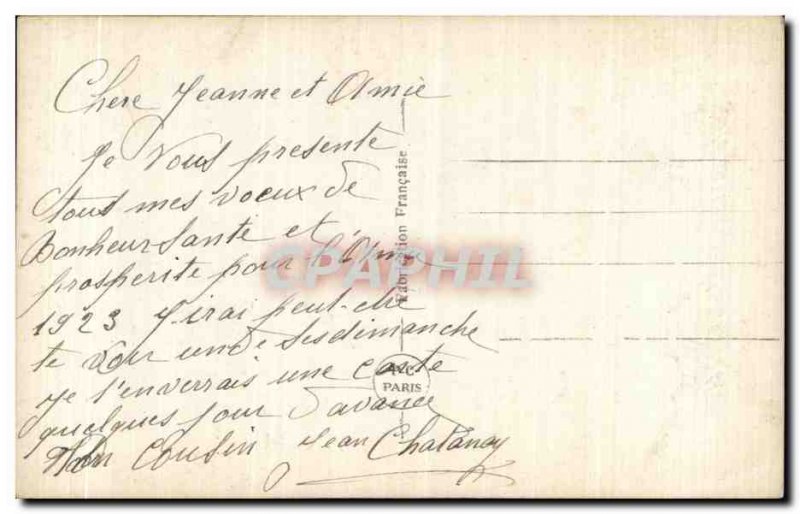 Chere Jeanne et Amie
Je Vous presente
tous mes voeux de
Bonheur Sante et
prosperite pour l'Anne
1923 J'irai peut-etre
te voir un de ses dimanche
Je t'enverrais une carte
quelques jour d'avance
Ton Cousin Jean Chatanay
Fabrication Française
PARIS
CPAPHIL